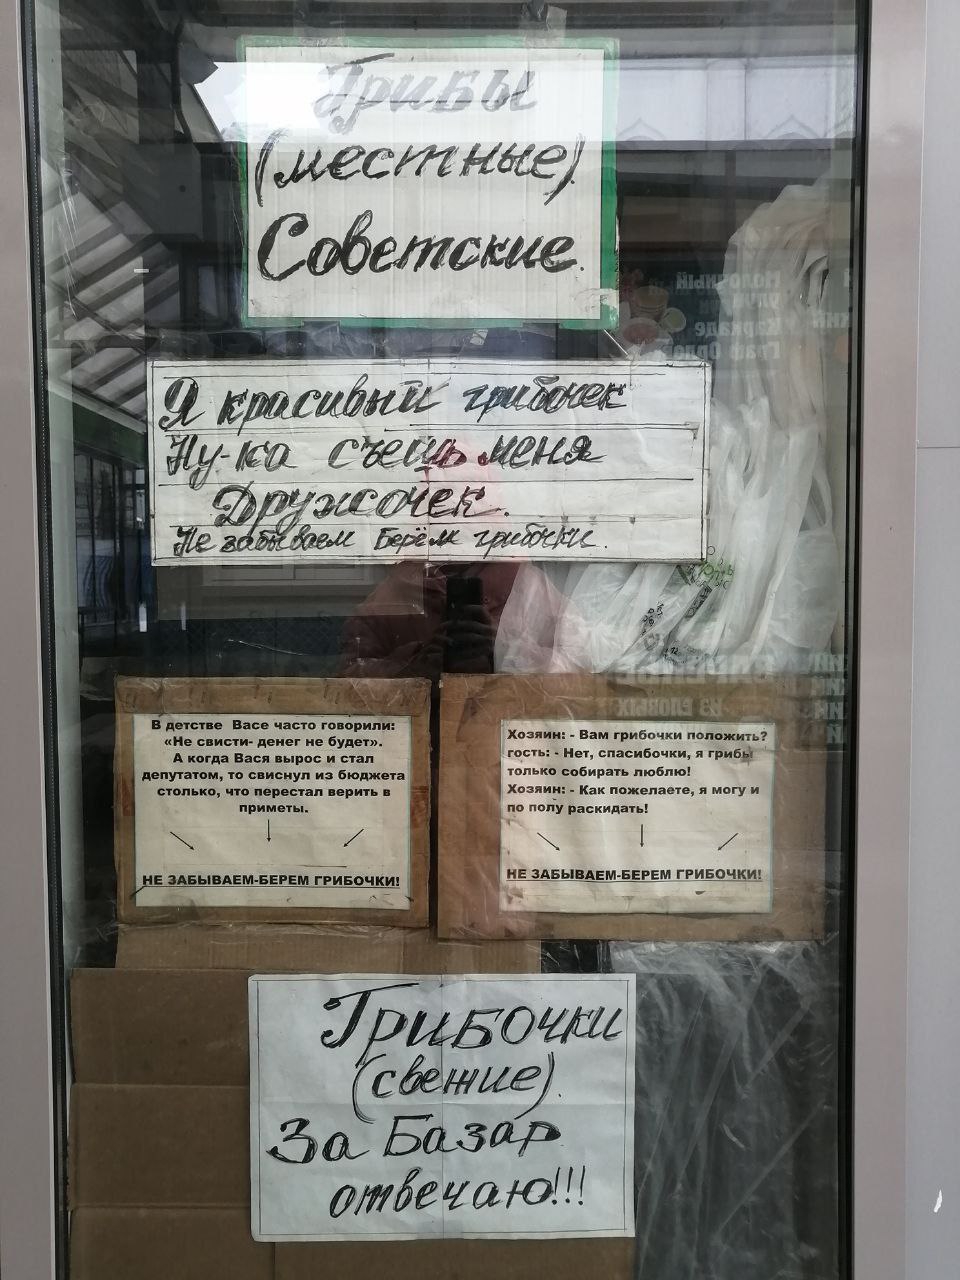 Грибы
(местные).
Советские.
Я красивый грибочек
Ну-ка съешь меня
Дружочек.
Не забываем Берём грибочки.
В детстве Васе часто говорили:
«Не свисти- денег не будет».
А когда Вася вырос и стал
депутатом, то свиснул из бюджета
столько, что перестал верить в
приметы.
НЕ ЗАБЫВАЕМ-БЕРЕМ ГРИБОЧКИ!
Хозяин: - Вам грибочки положить?
гость: - Нет, спасибочки, я грибы
только собирать люблю!
Хозяин: - Как пожелаете, я могу и
по полу раскидать!
НЕ ЗАБЫВАЕМ-БЕРЕМ ГРИБОЧКИ!
Грибочки
(свежие).
За Базар
отвечаю!!!
Молочный
улун
Каркаде